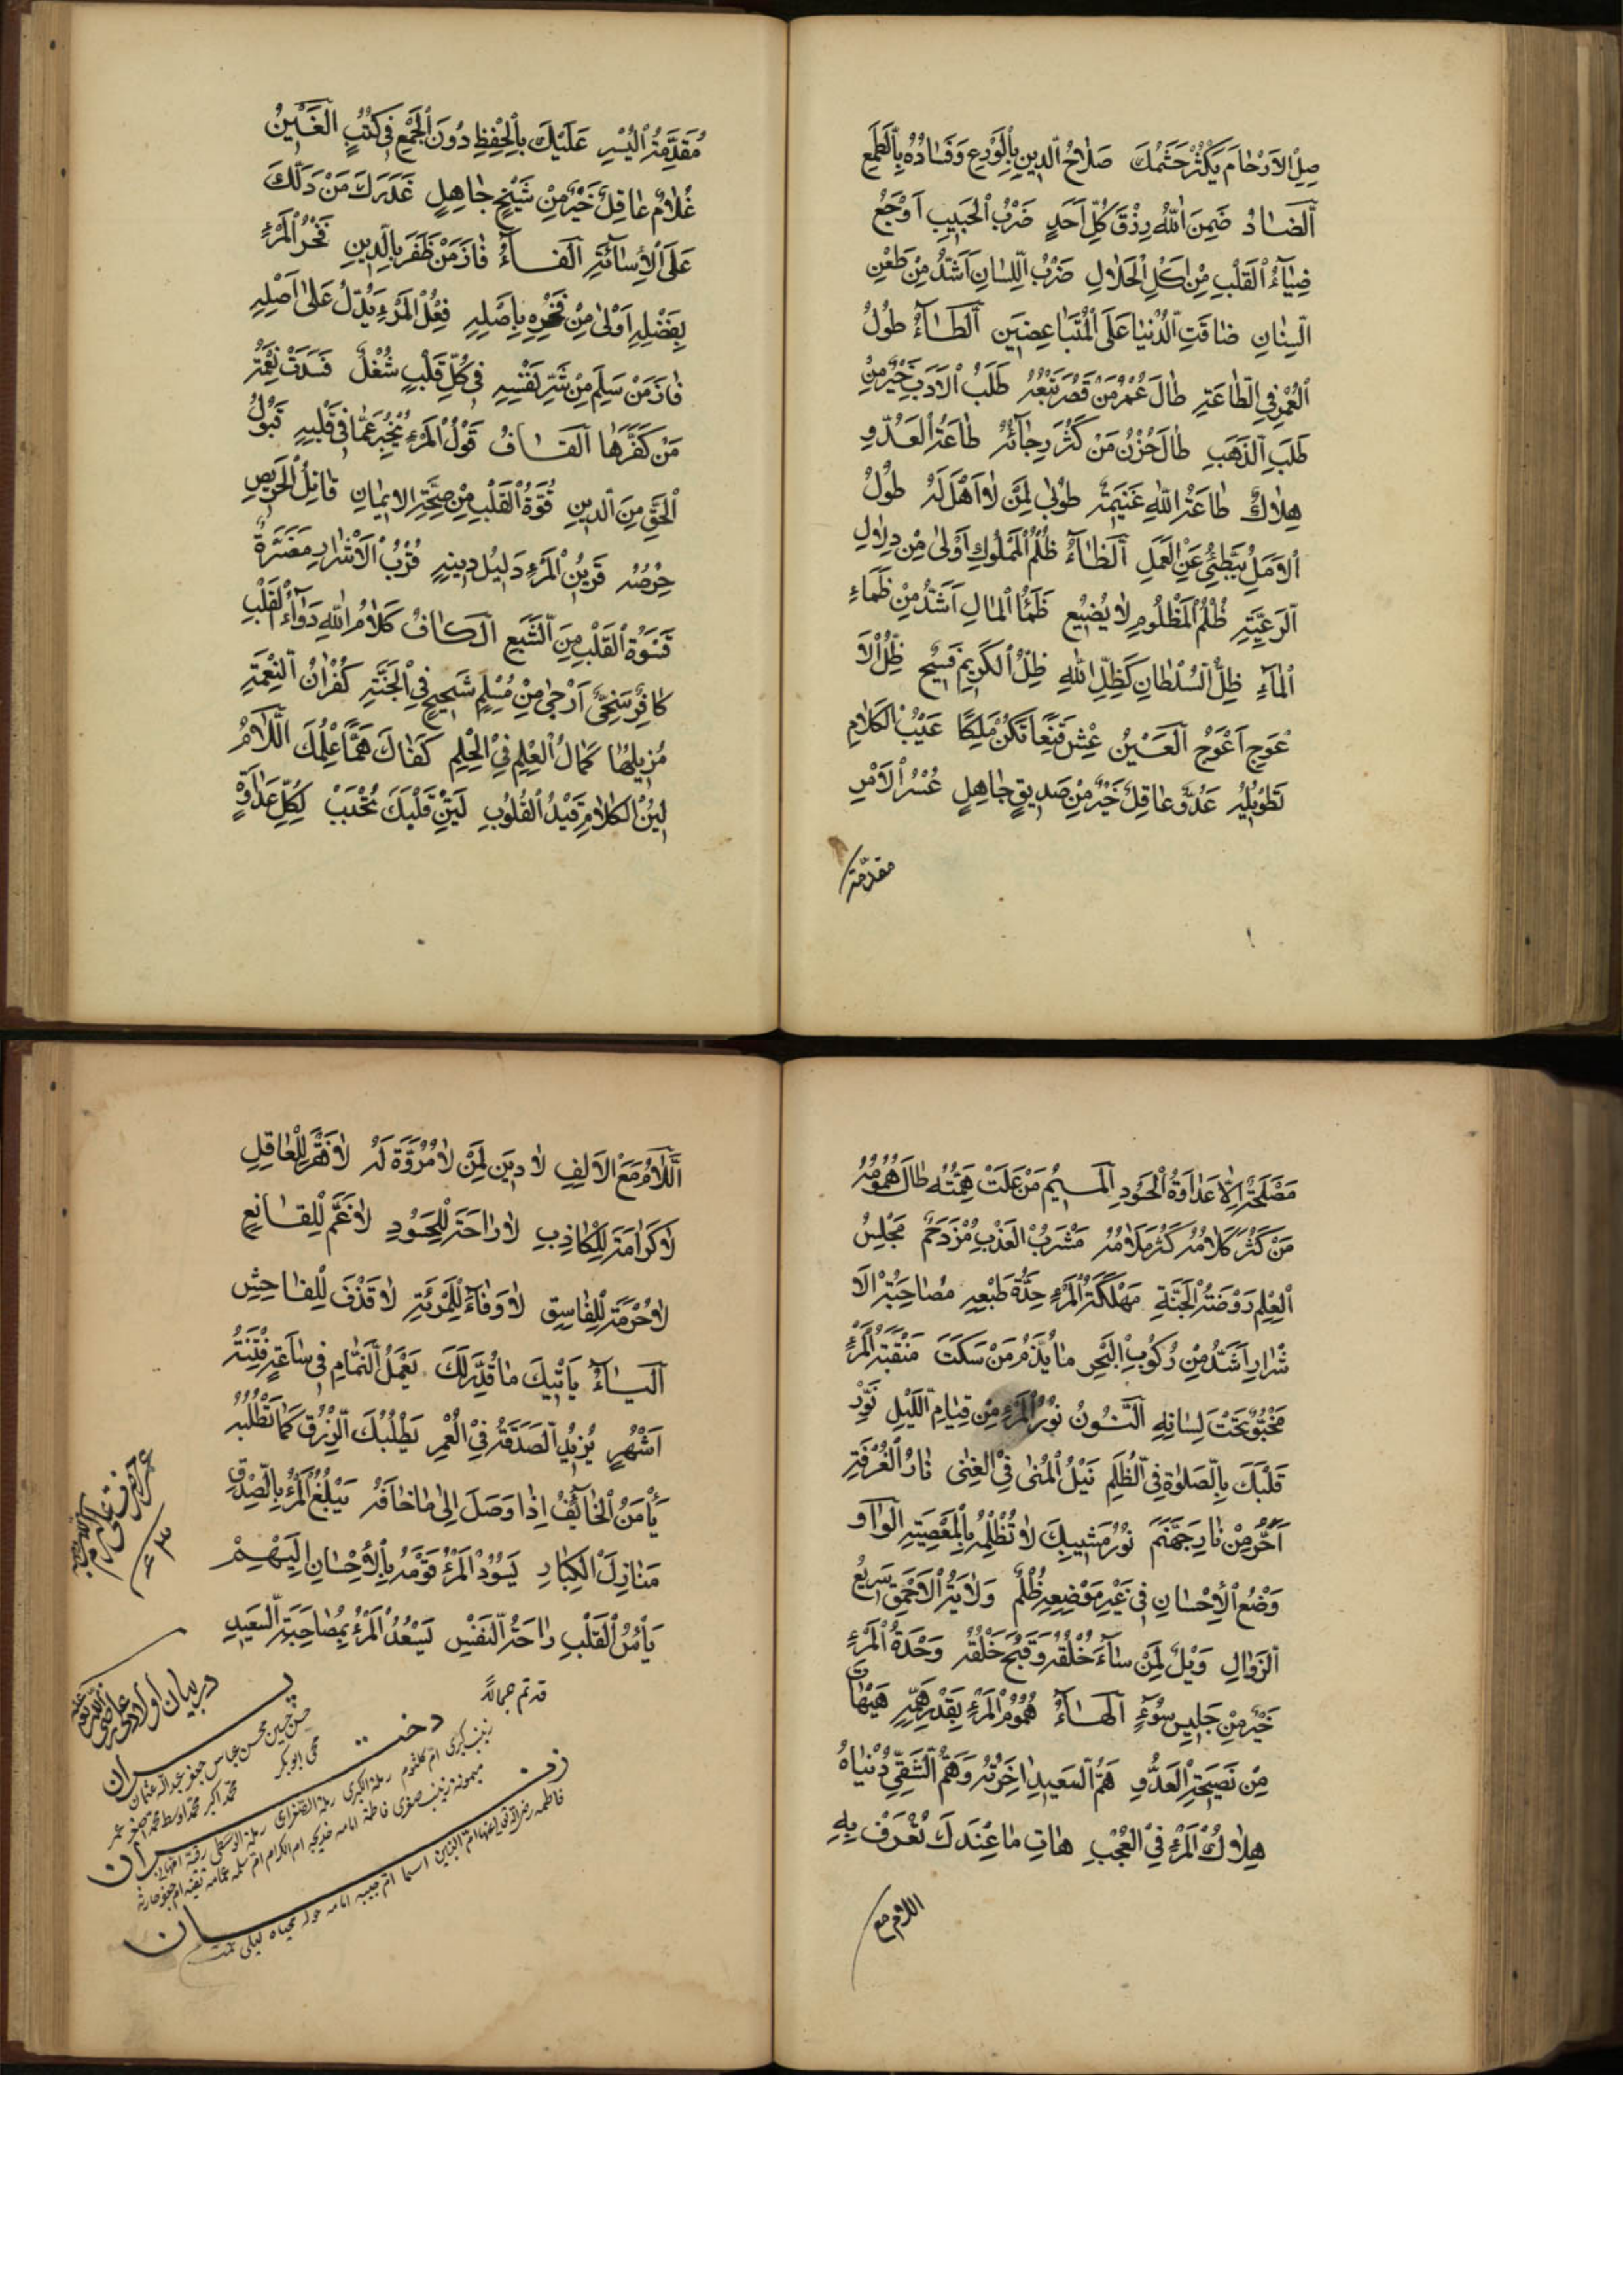 صِلِ الْاَرْحَامَ يَكْثُرْ حَشَمُكَ صَلَاحُ الدِّينِ بِالْوَرَعِ وَفَسَادُهُ بِالطَّمَعِ
اَلضَّادُ ضَمِنَ اللّٰهُ رِزْقَ كُلِّ اَحَدٍ ضَرْبُ الْحَبِيبِ اَوْجَعُ
ضِيَآءُ الْقَلْبِ مِنْ اَكْلِ الْحَلَالِ ضَرْبُ اللِّسَانِ اَشَدُّ مِنْ طَعْنِ
السِّنَانِ ضَاقَتِ الدُّنْيَا عَلَى الْمُتَبَاغِضِينَ اَلطَّآءُ طُولُ
الْعُمْرِ فِي الطَّاعَةِ طَالَ عُمْرُ مَنْ قَصُرَ تَعَبُهُ طَلَبُ الْاَدَبِ خَيْرٌ مِنْ
طَلَبِ الذَّهَبِ طَالَ حُزْنُ مَنْ كَثُرَ رَجَآئُهُ طَاعَةُ الْعَدُوِّ
هَلَاكٌ طَاعَةُ اللّٰهِ غَنِيمَةٌ طُوبٰى لِمَنْ لَا اَهْلَ لَهُ طُولُ
الْاَمَلِ يُبَطِّئُ عَنِ الْعَمَلِ اَلظَّآءُ ظُلْمُ الْمُلُوكِ اَوْلٰى مِنْ دَلَالِ
الرَّعِيَّةِ ظُلْمُ الْمَظْلُومِ لَا يُضِيعُ ظَمَأُ الْمَالِ اَشَدُّ مِنْ ظَمَاءِ
الْمَآءِ ظِلُّ السُّلْطَانِ كَظِلِّ اللّٰهِ ظِلُّ الْكَرِيمِ فَسِيحٌ ظِلُّ الْاَ
عْوَجِ اَعْوَجُ اَلْعَيْنُ عِشْ قَنِعًا تَكُنْ مَلِكًا عَيْبُ الْكَلَامِ
تَطْوِيلُهُ عَدُوٌّ عَاقِلٌ خَيْرٌ مِنْ صَدِيقٍ جَاهِلٍ عُسْرُ الْاَمْرِ
مقدّمة
مُقَدِّمَةُ الْيُسْرِ عَلَيْكَ بِالْحِفْظِ دُونَ الْجَمْعِ فِي كُتُبٍ اَلْغَيْنُ
غُلَامٌ عَاقِلٌ خَيْرٌ مِنْ شَيْخٍ جَاهِلٍ غَدَرَكَ مَنْ دَلَّكَ
عَلَى الْاِسَآئَةِ اَلْفَآءُ فَازَ مَنْ ظَفَرَ بِالدِّينِ فَخْرُ الْمَرْءِ
بِفَضْلِهِ اَوْلٰى مِنْ فَخْرِهِ بِاَصْلِهِ فِعْلُ الْمَرْءِ يَدُلُّ عَلٰى اَصْلِهِ
فَازَ مَنْ سَلِمَ مِنْ شَرِّ نَفْسِهِ فِي كُلِّ قَلْبٍ شُغْلٌ فَسَدَتْ نِعْمَةُ
مَنْ كَفَرَهَا اَلْقَافُ قَوْلُ الْمَرْءِ يُخْبِرُ عَمَّا فِي قَلْبِهِ قَبُولُ
الْحَقِّ مِنَ الدِّينِ قُوَّةُ الْقَلْبِ مِنْ صِحَّةِ الْاِيمَانِ قَاتِلُ الْحَرِيصِ
حِرْصُهُ قَرِينُ الْمَرْءِ دَلِيلُ دِينِهِ قُرْبُ الْاَشْرَارِ مَضَرَّةٌ
قَسْوَةُ الْقَلْبِ مِنَ الشَّبَعِ اَلْكَافُ كَلَامُ اللّٰهِ دَوَآءُ الْقَلْبِ
كَافِرٌ سَخِيٌّ اَرْجٰى مِنْ مُسْلِمٍ شَحِيحٍ فِي الْجَنَّةِ كُفْرَانُ النِّعْمَةِ
مُزِيلُهَا كَمَالُ الْعِلْمِ فِي الْحِلْمِ كَفَاكَ هَمًّا عِلْمُكَ اَللَّامُ
لِينُ الْكَلَامِ قَيْدُ الْقُلُوبِ لَيِّنْ قَلْبَكَ تُحْبَبْ لِكُلِّ عَدَاوَةٍ
مَصْلَحَةٌ اِلَّا عَدَاوَةُ الْحَسُودِ اَلْمِيمُ مَنْ عَلَتْ هِمَّتُهُ طَالَ هُمُومُهُ
مَنْ كَثُرَ كَلَامُهُ كَثُرَ مَلَامُهُ مَشْرَبُ الْعَذْبِ مُزْدَحَمٌ مَجْلِسُ
الْعِلْمِ رَوْضَةُ الْجَنَّةِ مَهْلَكَةُ الْمَرْءِ حِدَّةُ طَبْعِهِ مُصَاحَبَةُ الْاَ
شْرَارِ اَشَدُّ مِنْ رُكُوبِ الْبَحْرِ مَا يُذَمُّ مَنْ سَكَتَ مَنْقَبَةُ الْمَرْءِ
مَخْبُوٌّ تَحْتَ لِسَانِهِ اَلنُّونُ نُورُ الْمَرْءِ مِنْ قِيَامِ اللَّيْلِ نَوِّرْ
قَلْبَكَ بِالصَّلٰوةِ فِي الظُّلَمِ نَيْلُ الْمُنٰى فِي الْغِنٰى نَارُ الْفُرْقَةِ
اَحَرُّ مِنْ نَارِ جَهَنَّمَ نُورُ مَشِيبِكَ لَا تُظْلِمْهُ بِالْمَعْصِيَةِ اَلْوَاوُ
وَضْعُ الْاِحْسَانِ فِي غَيْرِ مَوْضِعِهِ ظُلْمٌ وَلَايَةُ الْاَحْمَقِ سَرِيعُ
الزَّوَالِ وَيْلٌ لِمَنْ سَآءَ خُلْقُهُ وَقَبُحَ خَلْقُهُ وَحْدَةُ الْمَرْءِ
خَيْرٌ مِنْ جَلِيسِ سُوْءٍ اَلْهَآءُ هُمُومُ الْمَرْءِ بِقَدْرِ هِمَّتِهِ هَيْهَاتَ
مِنْ نَصِيحَةِ الْعَدُوِّ هَمُّ السَّعِيدِ اٰخِرَتُهُ وَهَمُّ الشَّقِيِّ دُنْيَاهُ
هَلَاكُ الْمَرْءِ فِي الْعُجْبِ هَاتِ مَا عِنْدَكَ تُعْرَفْ بِهِ
اللام مع
اَللَّامُ مَعَ الْاَلِفِ لَا دِينَ لِمَنْ لَا مُرُوَّةَ لَهُ لَا فَقْرَ لِلْعَاقِلِ
لَا كَرَامَةَ لِلْكَاذِبِ لَا رَاحَةَ لِلْحَسُودِ لَا غَمَّ لِلْقَانِعِ
لَا حُرْمَةَ لِلْفَاسِقِ لَا وَفَآءَ لِلْمَرْئَةِ لَا قَذْفَ لِلْفَاحِشِ
اَلْيَآءُ يَأْتِيكَ مَا قُدِّرَ لَكَ يَعْمَلُ النَّمَّامُ فِي سَاعَةٍ فِتْنَةَ
اَشْهُرٍ يُزِيدُ الصَّدَقَةُ فِي الْعُمْرِ يَطْلُبُكَ الرِّزْقُ كَمَا تَطْلُبُهُ
يَأْمَنُ الْخَآئِفُ اِذَا وَصَلَ اِلٰى مَا خَافَهُ يَبْلُغُ الْمَرْءُ بِالصِّدْقِ
مَنَازِلَ الْكِبَارِ يَسُوْدُ الْمَرْءُ قَوْمَهُ بِالْاِحْسَانِ اِلَيْهِمْ
يَأْسُ الْقَلْبِ رَاحَةُ النَّفْسِ يَسْعَدُ الْمَرْءُ بِمُصَاحَبَةِ السَّعِيدِ
قد تم
در بيان اولاد
پسران
حسن حسين محسن عباس جعفر عبدالله عثمان
محمد اكبر محمد اوسط محمد اصغر عمر
يحيى ابوبكر
دختران
زينب كبرى ام كلثوم رملة الكبرى رملة الصغرى رملة الوسطى رقية
ميمونه زينب صغرى فاطمة امامه خديجه ام الكرام ام سلمه
زنان
فاطمه ام البنين اسما ام حبيبه امامه خوله محياه ليلى تمت